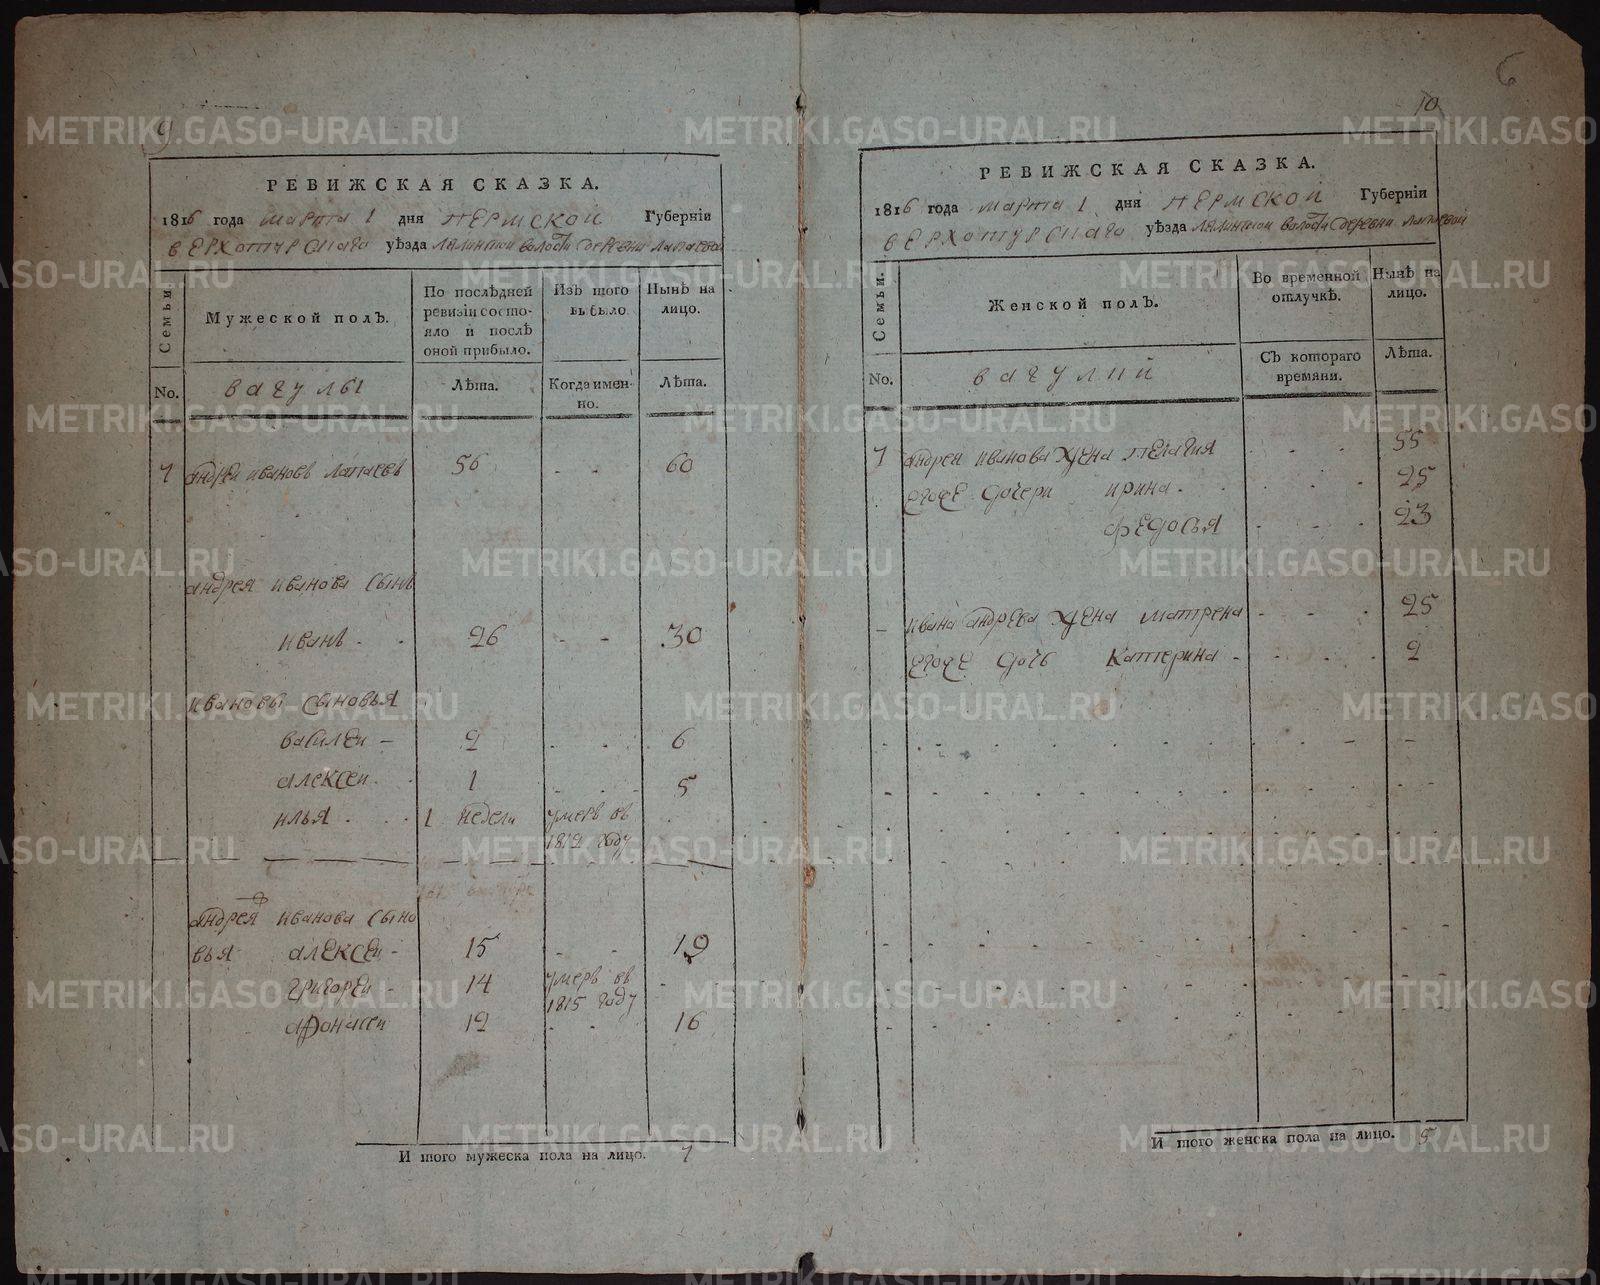 6
9
РЕВИЖСКАЯ СКАЗКА.
1816 года марта 1 дня пермской Губернїи
верхотурскаго уѣзда лялинской волости деревни лапаевой
Семьи. Мужеской полъ. По послѣдней ревизїи состояло и послѣ оной прибыло. Изъ того выбыло. Нынѣ на лицо.
No. вагулы Лѣта. Когда именно. Лѣта.
7 андрей ивановъ лапаевъ 56 - - 60
андрея иванова сынъ
иванъ - - 26 - - 30
ивановы сыновья
василеи - 2 - - 6
алексеи - 1 - - 5
илья - - 1 недели умеръ въ 1812 году -
андрея иванова сыно
вья алексеи - 15 - - 19
григореи - 14 умеръ въ 1815 году -
афонасеи 12 - - 16
И того мужеска пола на лицо. 7
10
РЕВИЖСКАЯ СКАЗКА.
1816 года марта 1 дня пермской Губернїи
верхотурскаго уѣзда лялинской волости деревни лапаевой
Семьи. Женской полъ. Во временной отлучкѣ. Нынѣ на лицо.
No. вагулки Съ котораго времяни. Лѣта.
7 андреи иванова жена пелагия - - - 55
егоже дочери ирина - - - - 25
федосья - - - 23
- ивана андреева жена матрена - - - 25
егоже дочь катерина - - - - 2
И того женска пола на лицо. 5
METRIKI.GASO-URAL.RU